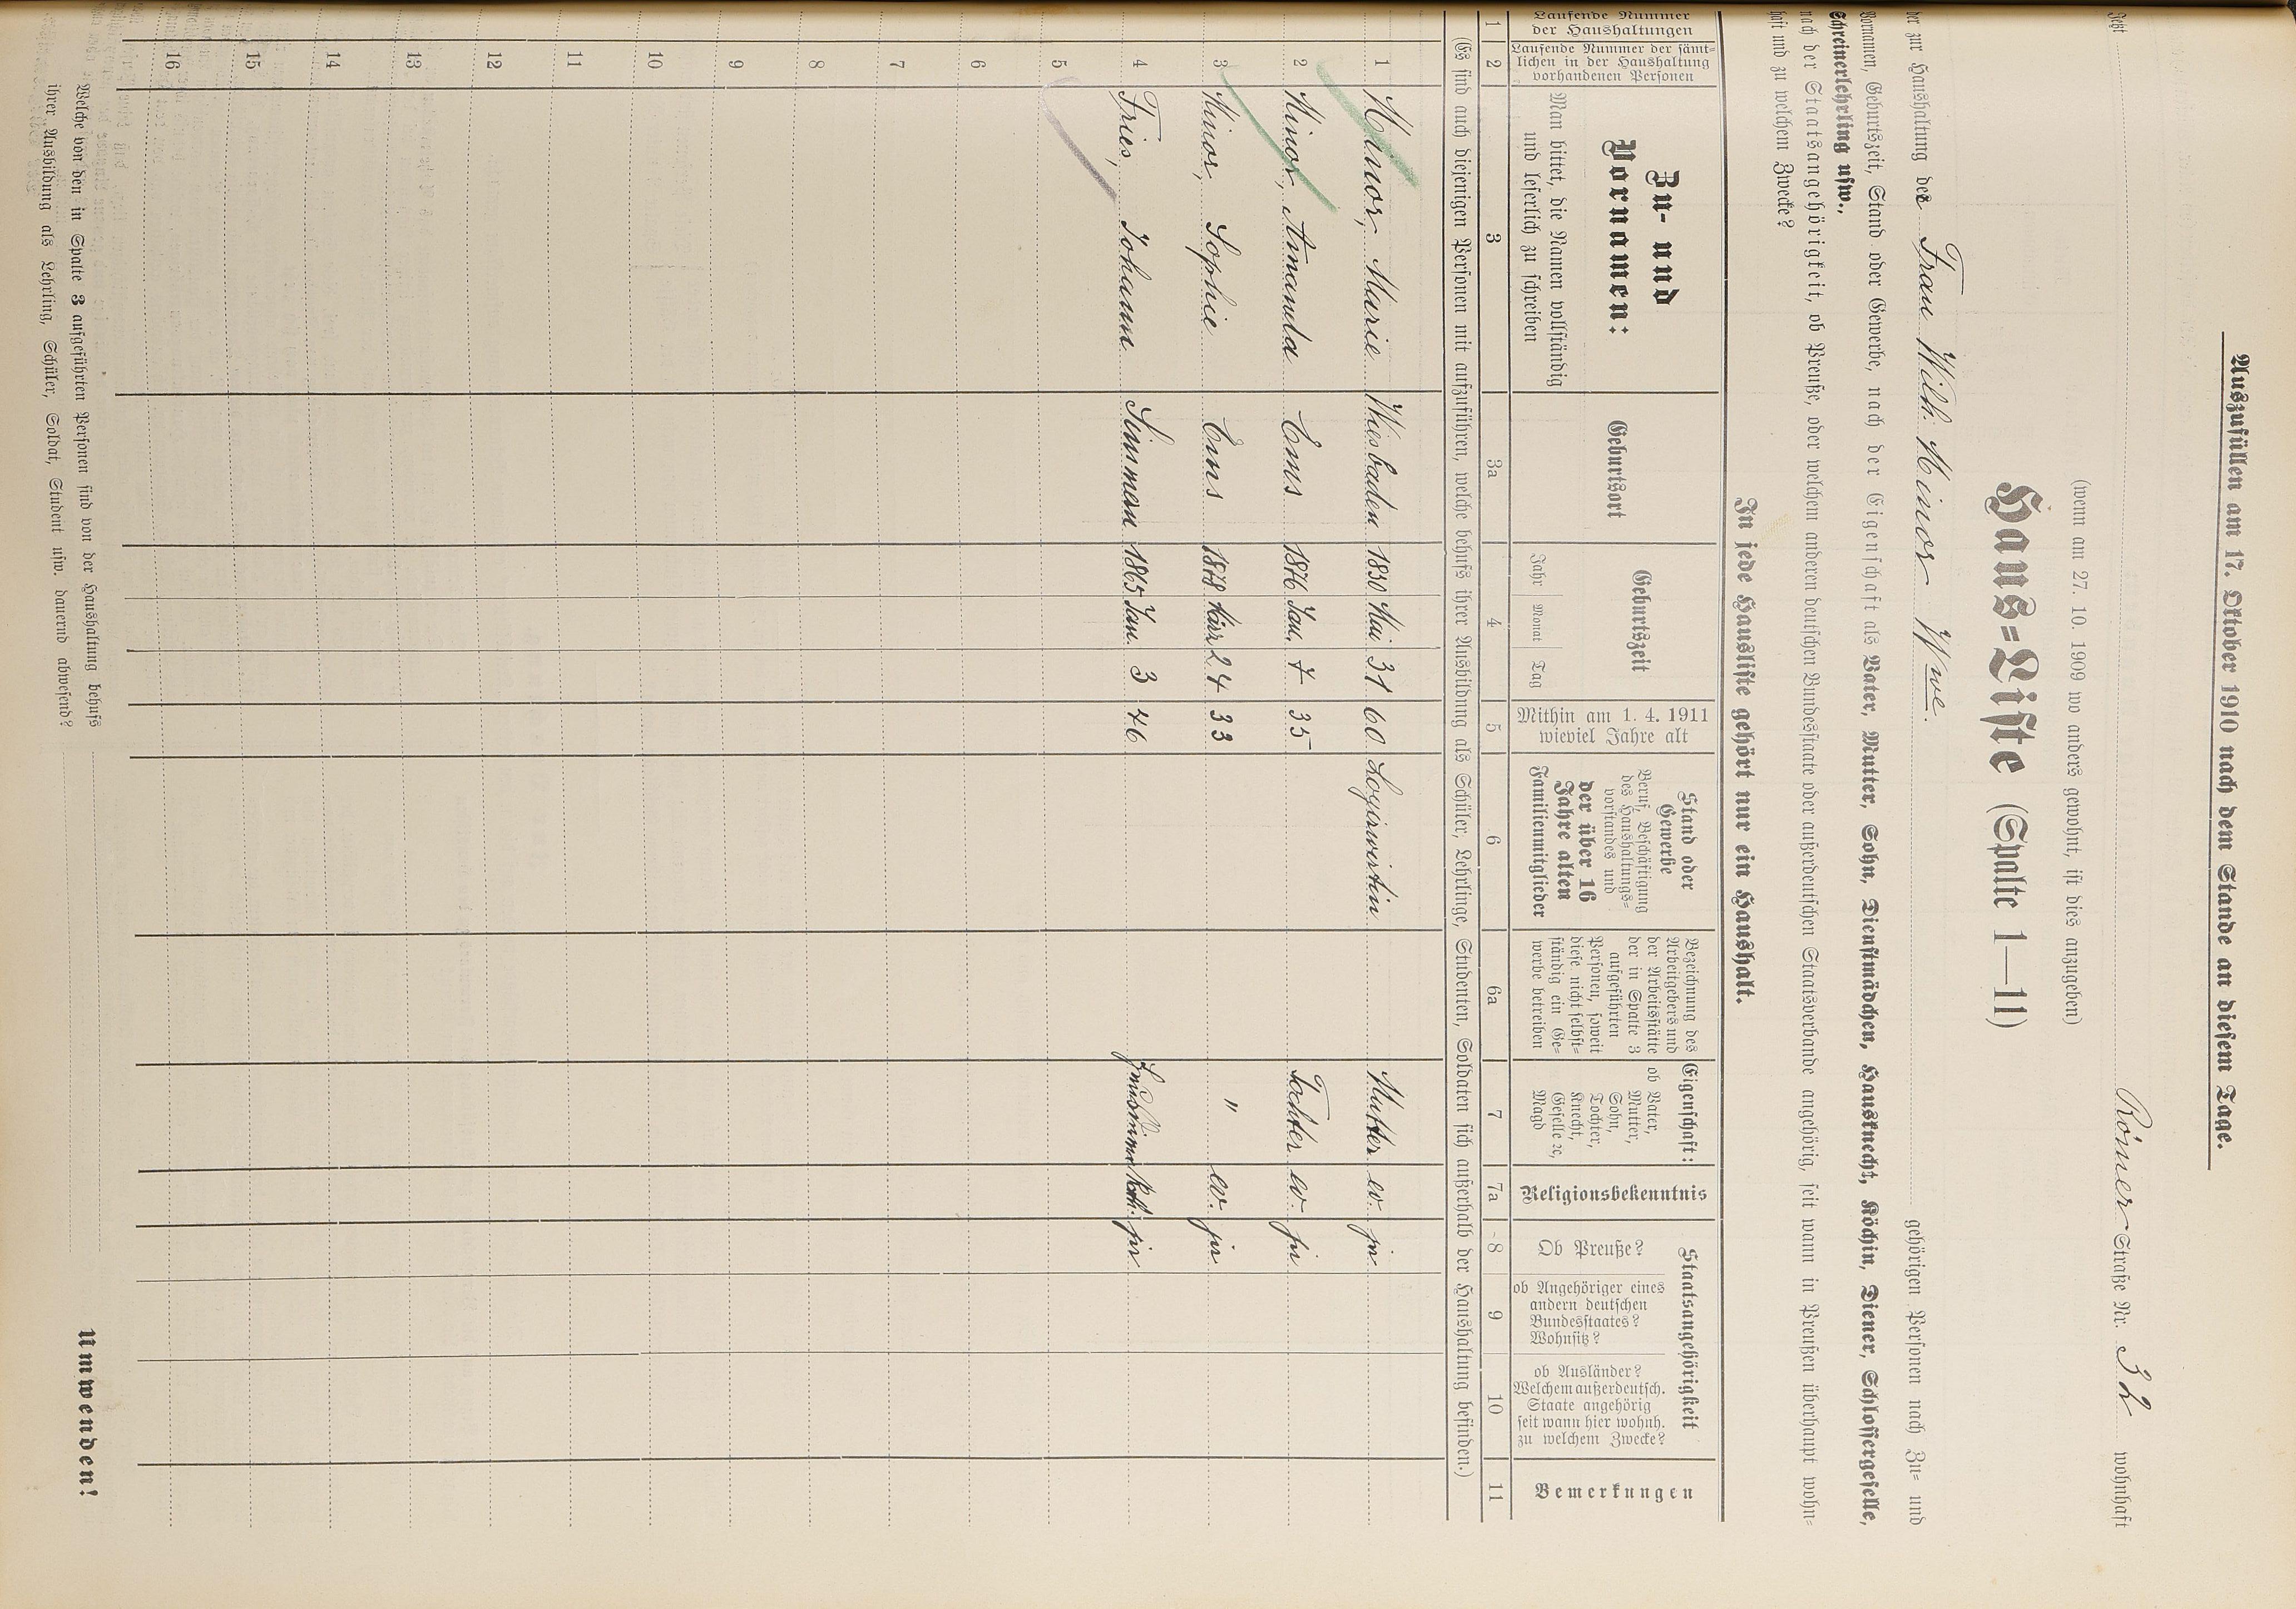 Auszufüllen am 17. Oktober 1910 nach dem Stande an diesem Tage.
Jetzt Römer-Straße Nr. 32 wohnhaft
(wenn am 27. 10. 1909 wo anders gewohnt, ist dies anzugeben)
Haus-Liste (Spalte 1—11)
der zur Haushaltung der Frau Wilh. Minor Wwe. gehörigen Personen nach Zu- und
Vornamen, Geburtszeit, Stand oder Gewerbe, nach der Eigenschaft als Vater, Mutter, Sohn, Dienstmädchen, Hausknecht, Köchin, Diener, Schlossergeselle,
Schreinerlehrling usw.,
nach der Staatsangehörigkeit, ob Preuße, oder welchem anderen deutschen Bundesstaate oder außerdeutschen Staatsverbande angehörig, seit wann in Preußen überhaupt wohn-
haft und zu welchem Zwecke?
In jede Hausliste gehört nur ein Haushalt.
Laufende Nummer der Haushaltungen
Laufende Nummer der sämt-
lichen in der Haushaltung
vorhandenen Personen
Zu- und
Vornamen:
Man bittet, die Namen vollständig
und leserlich zu schreiben
Geburtsort
Geburtszeit
Jahr Monat Tag
Mithin am 1. 4. 1911
wieviel Jahre alt
Stand oder
Gewerbe
Beruf, Beschäftigung
des Haushaltungs-
vorstandes und
der über 16
Jahre alten
Familienmitglieder
Bezeichnung des
Arbeitgebers und
der Arbeitsstätte
der in Spalte 3
aufgeführten
Personen, soweit
diese nicht selbst-
ständig ein Ge-
werbe betreiben
Eigenschaft:
ob Vater,
Mutter,
Sohn,
Tochter,
Knecht,
Geselle ꝛc,
Magd
Religionsbekenntnis
Staatsangehörigkeit
Ob Preuße?
ob Angehöriger eines
andern deutschen
Bundesstaates?
Wohnsitz?
ob Ausländer?
Welchem außerdeutsch.
Staate angehörig
seit wann hier wohnh.
zu welchem Zwecke?
Bemerkungen
1 2 3 3a 4 5 6 6a 7 7a 8 9 10 11
(Es sind auch diejenigen Personen mit aufzuführen, welche behufs ihrer Ausbildung als Schüler, Lehrlinge, Studenten, Soldaten sich außerhalb der Haushaltung befinden.)
1 Minor, Marie Wiesbaden 1850 Mai 31 60 Logiswirtin Mutter ev. ja
2 Minor, Amanda Ems 1876 Jan. 7 35 Tochter ev. ja
3 Minor, Sophie Ems 1878 März 24 33 " ev. ja
4 Fries, Johann Simmern 1865 Jan. 3 46 ja
5
6
7
8
9
10
11
12
13
14
15
16
Welche von den in Spalte 3 aufgeführten Personen sind von der Haushaltung behufs
ihrer Ausbildung als Lehrling, Schüler, Soldat, Student usw. dauernd abwesend?
Umwenden!